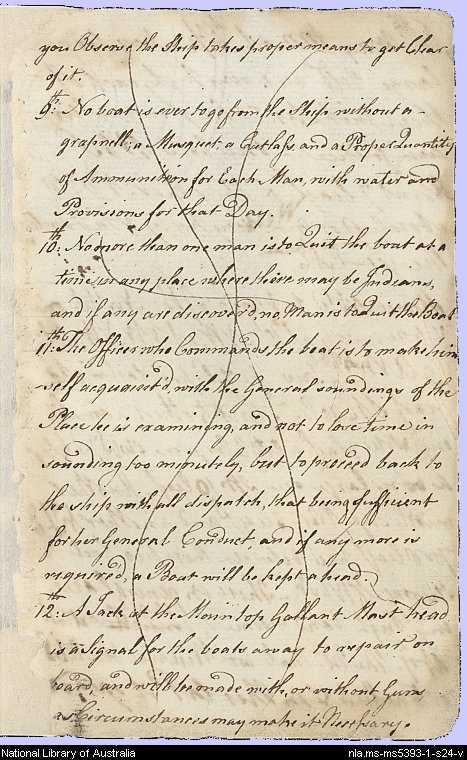 you Observe the Ship takes proper means to get Clear
of it.
9th: No boat is ever to go from the Ship without a
grapnell; a Musquet, a Cutlass, and a Proper Quantity
of Ammunition for Each Man, with water and
Provisions for that Day.
10th: No more than one man is to Quit the boat at a
time in any place where there may be Indians,
and if any are discover'd, no Man is to Quit the Boat
11th: The Officer who Commands the boat is to make him
self acquaint'd, with the General soundings of the
Place he is examining, and not to lose time in
sounding too minutely, but to proceed back to
the ship with all dispatch, that being sufficient
for her General Conduct, and if any more is
requir'd, a Boat will be kept ahead.
12th: A Jack at the Main top Gallant Mast head
is a Signal for the boats away to repair on
board, and will be made with, or without Guns
as Circumstances may make it Necessary.
National Library of Australia
nla.ms-ms5393-1-s24-v